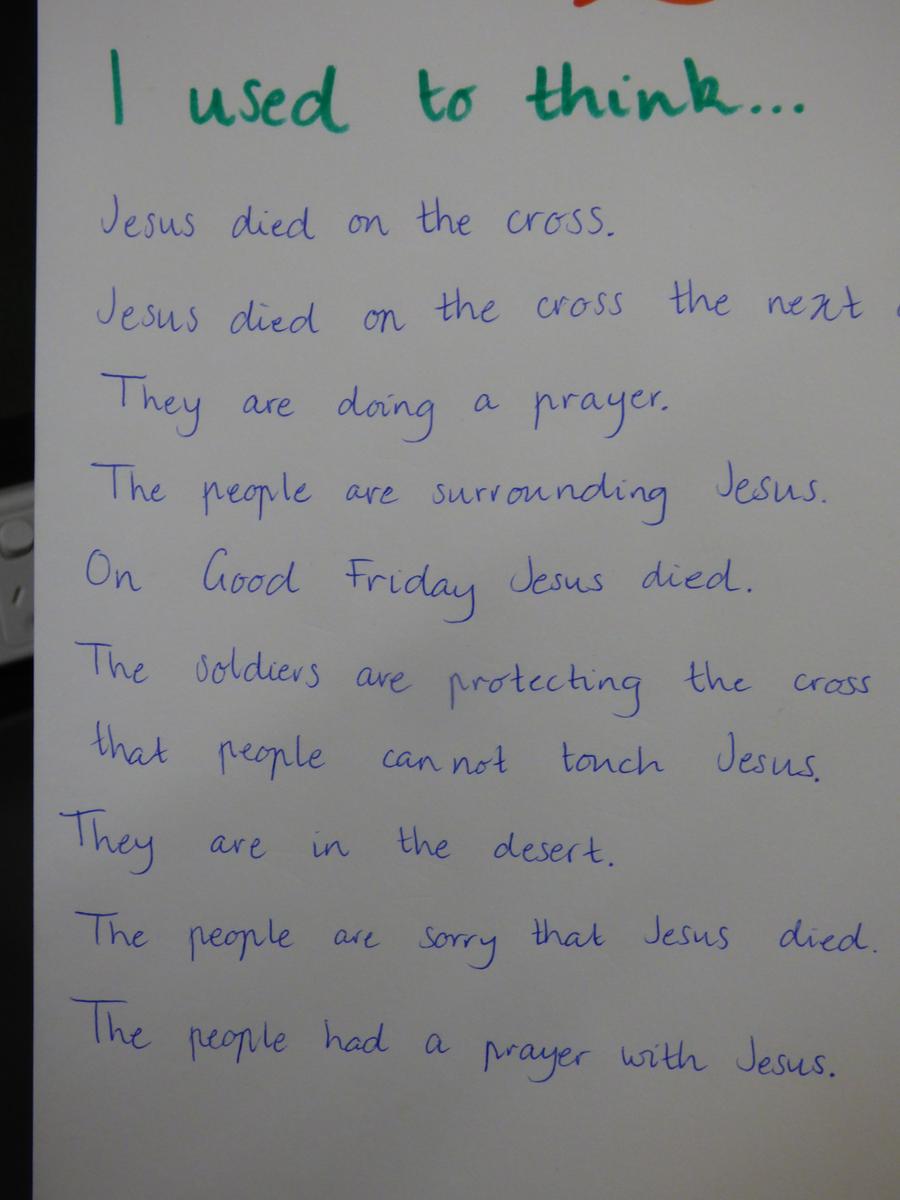 I used to think...
Jesus died on the cross.
Jesus died on the cross the next
They are doing a prayer.
The people are surrounding Jesus.
On Good Friday Jesus died.
The soldiers are protecting the cross
that people cannot touch Jesus.
They are in the desert.
The people are sorry that Jesus died.
The people had a prayer with Jesus.